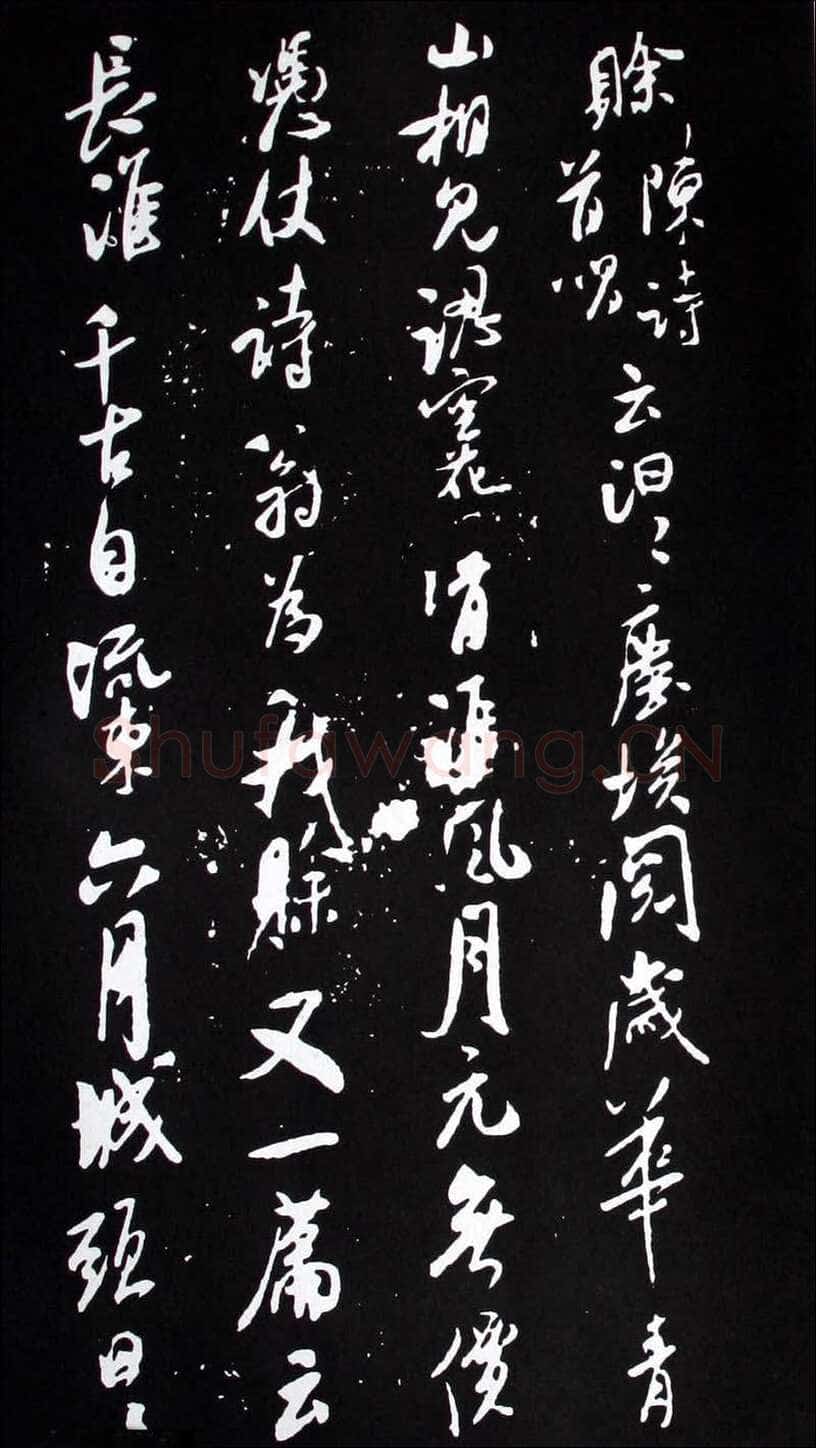 賒陳詩首唱云汩汩塵埃閱歲華青
山相見誤空花清追風月元無價
憑仗詩翁為我賒又一篇云
長淮千古自流東六月城頭日日
Shufawang.CN